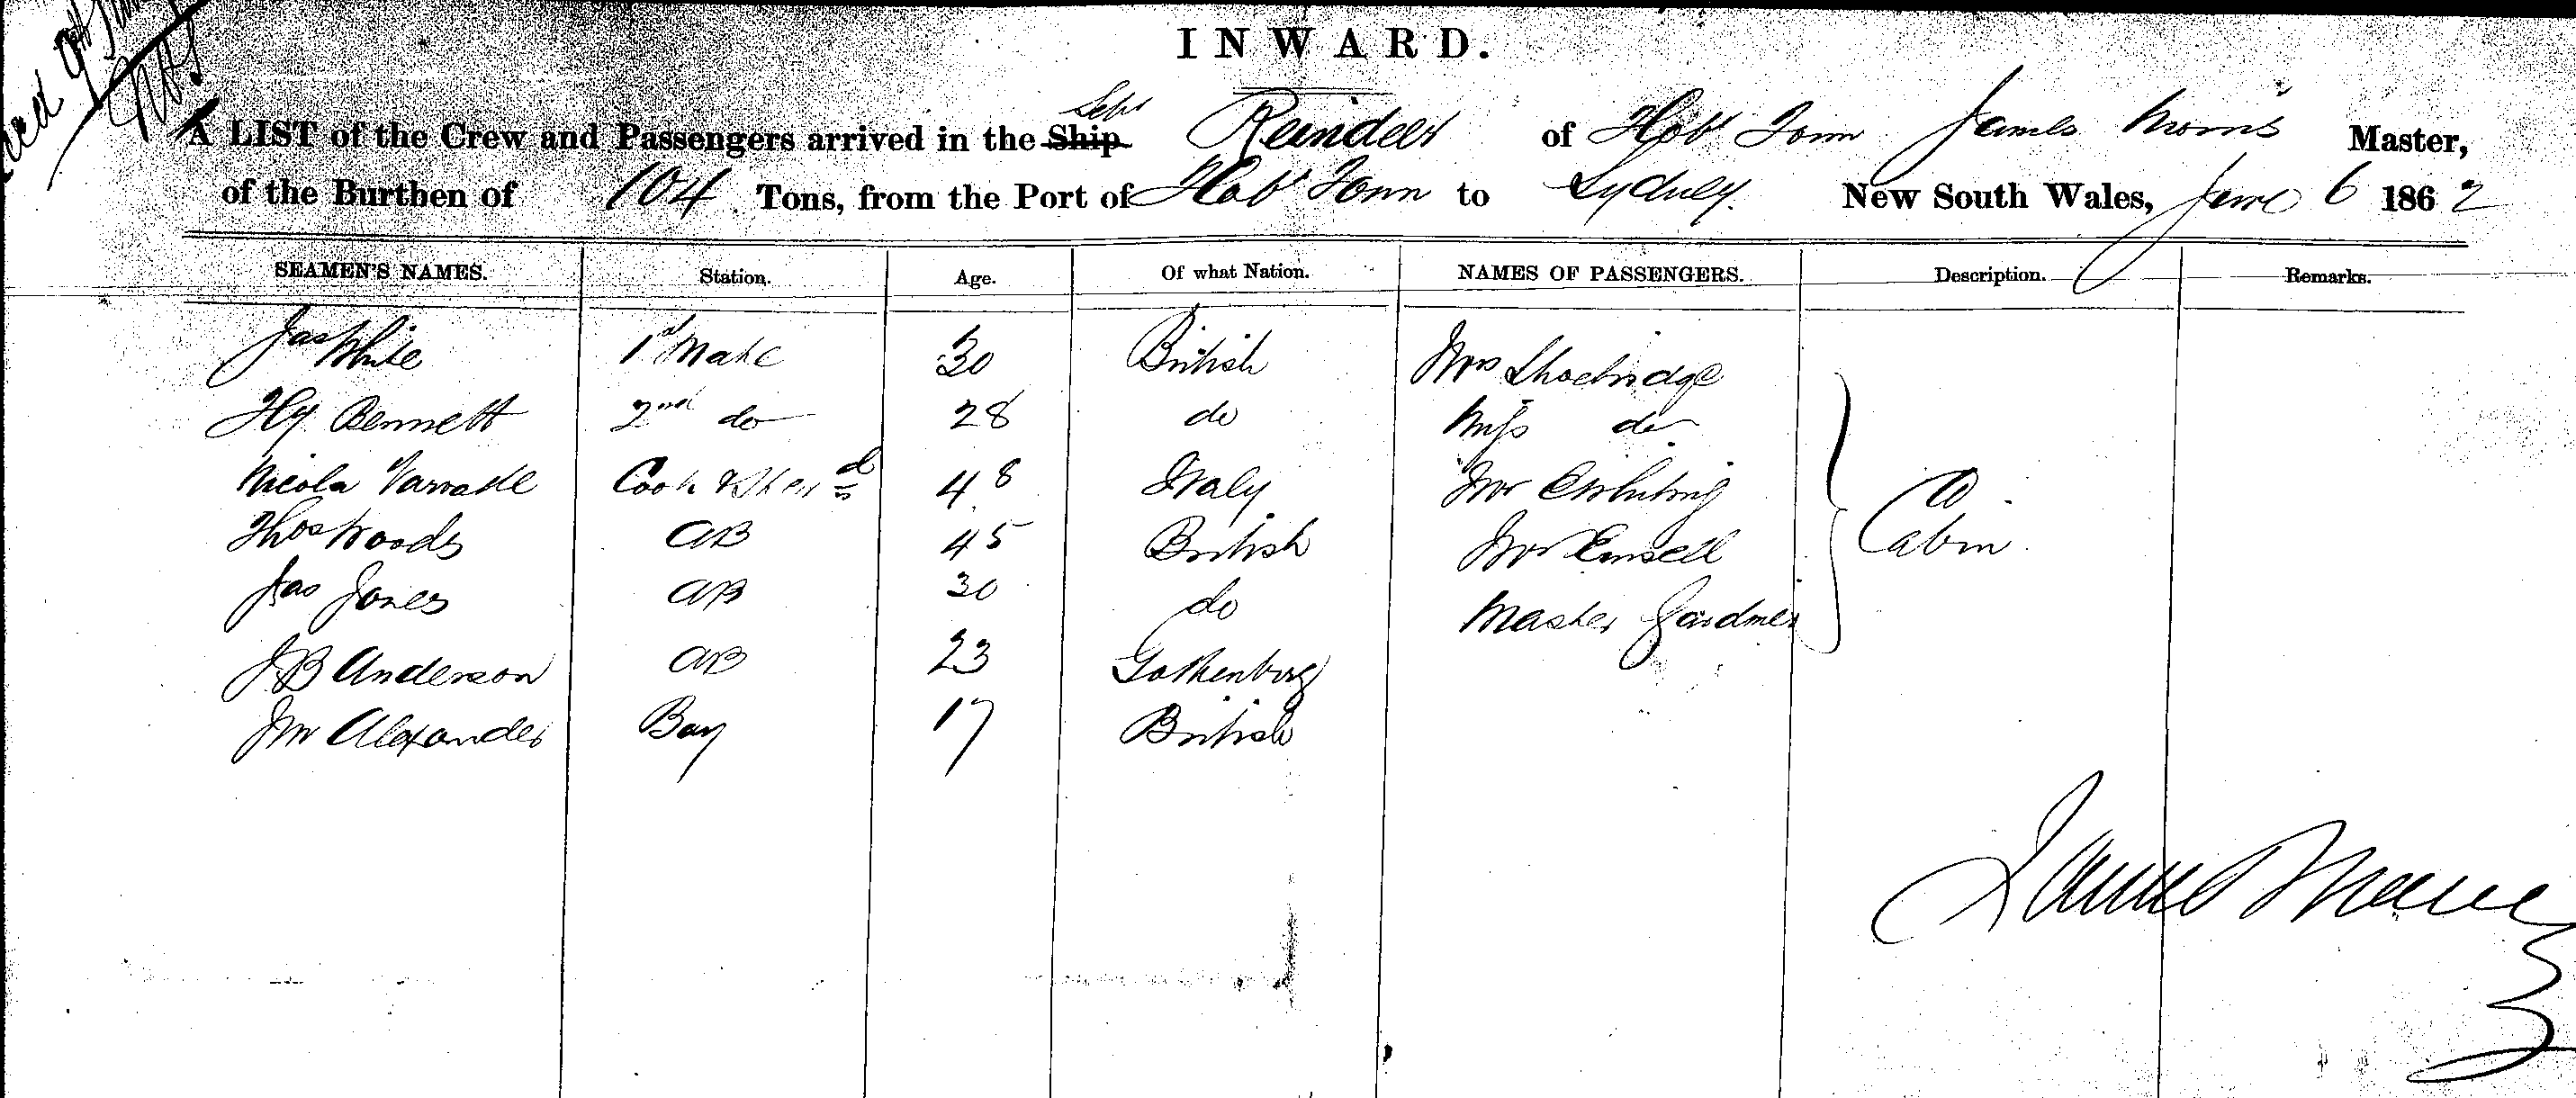 INWARD.
A LIST of the Crew and Passengers arrived in the Ship Schr Reindeer of Hobt Town James Morris Master,
of the Burthen of 104 Tons, from the Port of Hobt Town to Sydney New South Wales, June 6 1862
SEAMEN'S NAMES. Station. Age. Of what Nation. NAMES OF PASSENGERS. Description. Remarks.
Jas White 1st Mate 30 British Mrs Shoebridge
Hy Bennett 2nd do 28 do Miss do
Nicola Cook & Stewd 48 Italy Mr
Thos Woods AB 45 British Mr Cabin
Jas Jones AB 30 do Master Gardner
J B Anderson AB 23 Gothenburg
Jno Alexander Boy 17 British
James